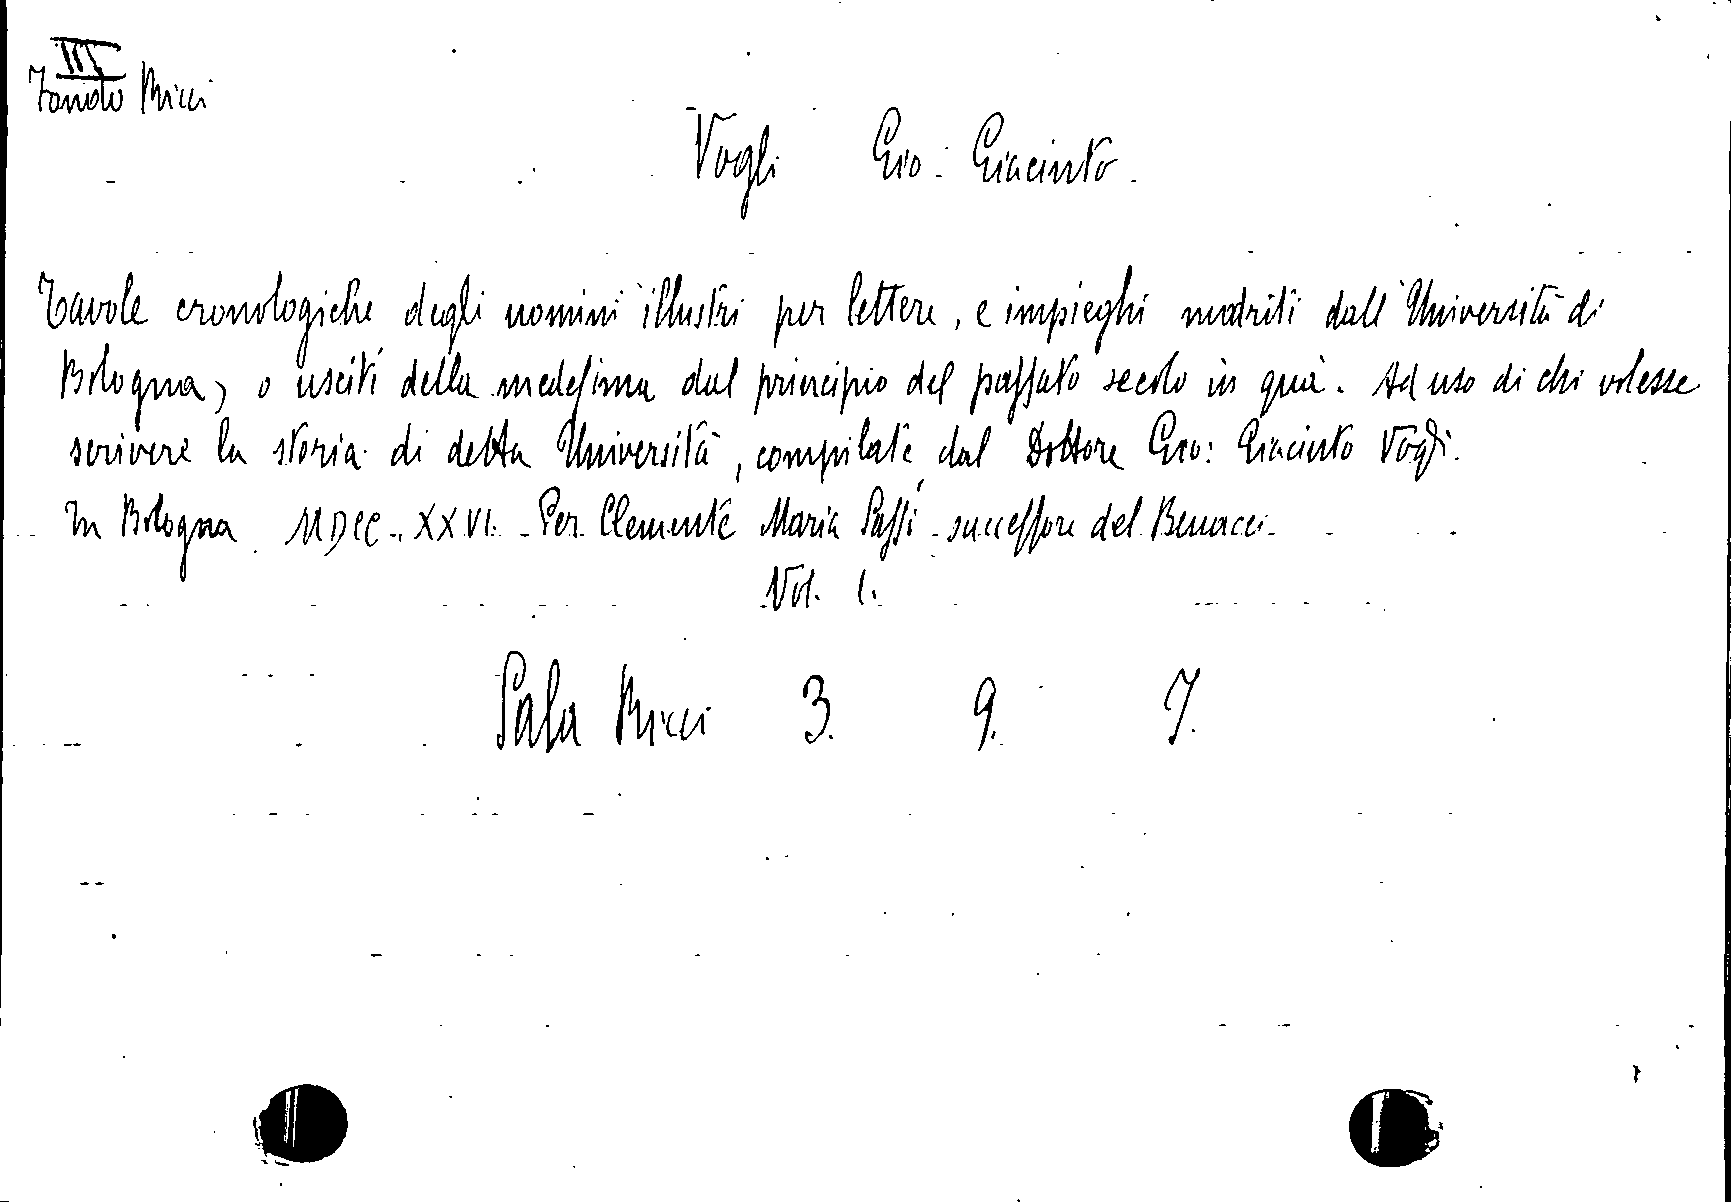 III
Fondo Ricci
Vogli Gio: Giacinto.
Tavole cronologiche degli uomini illustri per lettere, e impieghi nudriti dall'Università di
Bologna, o usciti della medesima dal principio del passato secolo in quà. Ad uso di chi volesse
scrivere la storia di detta Università, compilate dal Dottore Gio: Giacinto Vogli.
In Bologna MDCC.XXVI. Per Clemente Maria Sassi successore del Benacci.
Vol. 1.
Sala Ricci 3. 9. 7.